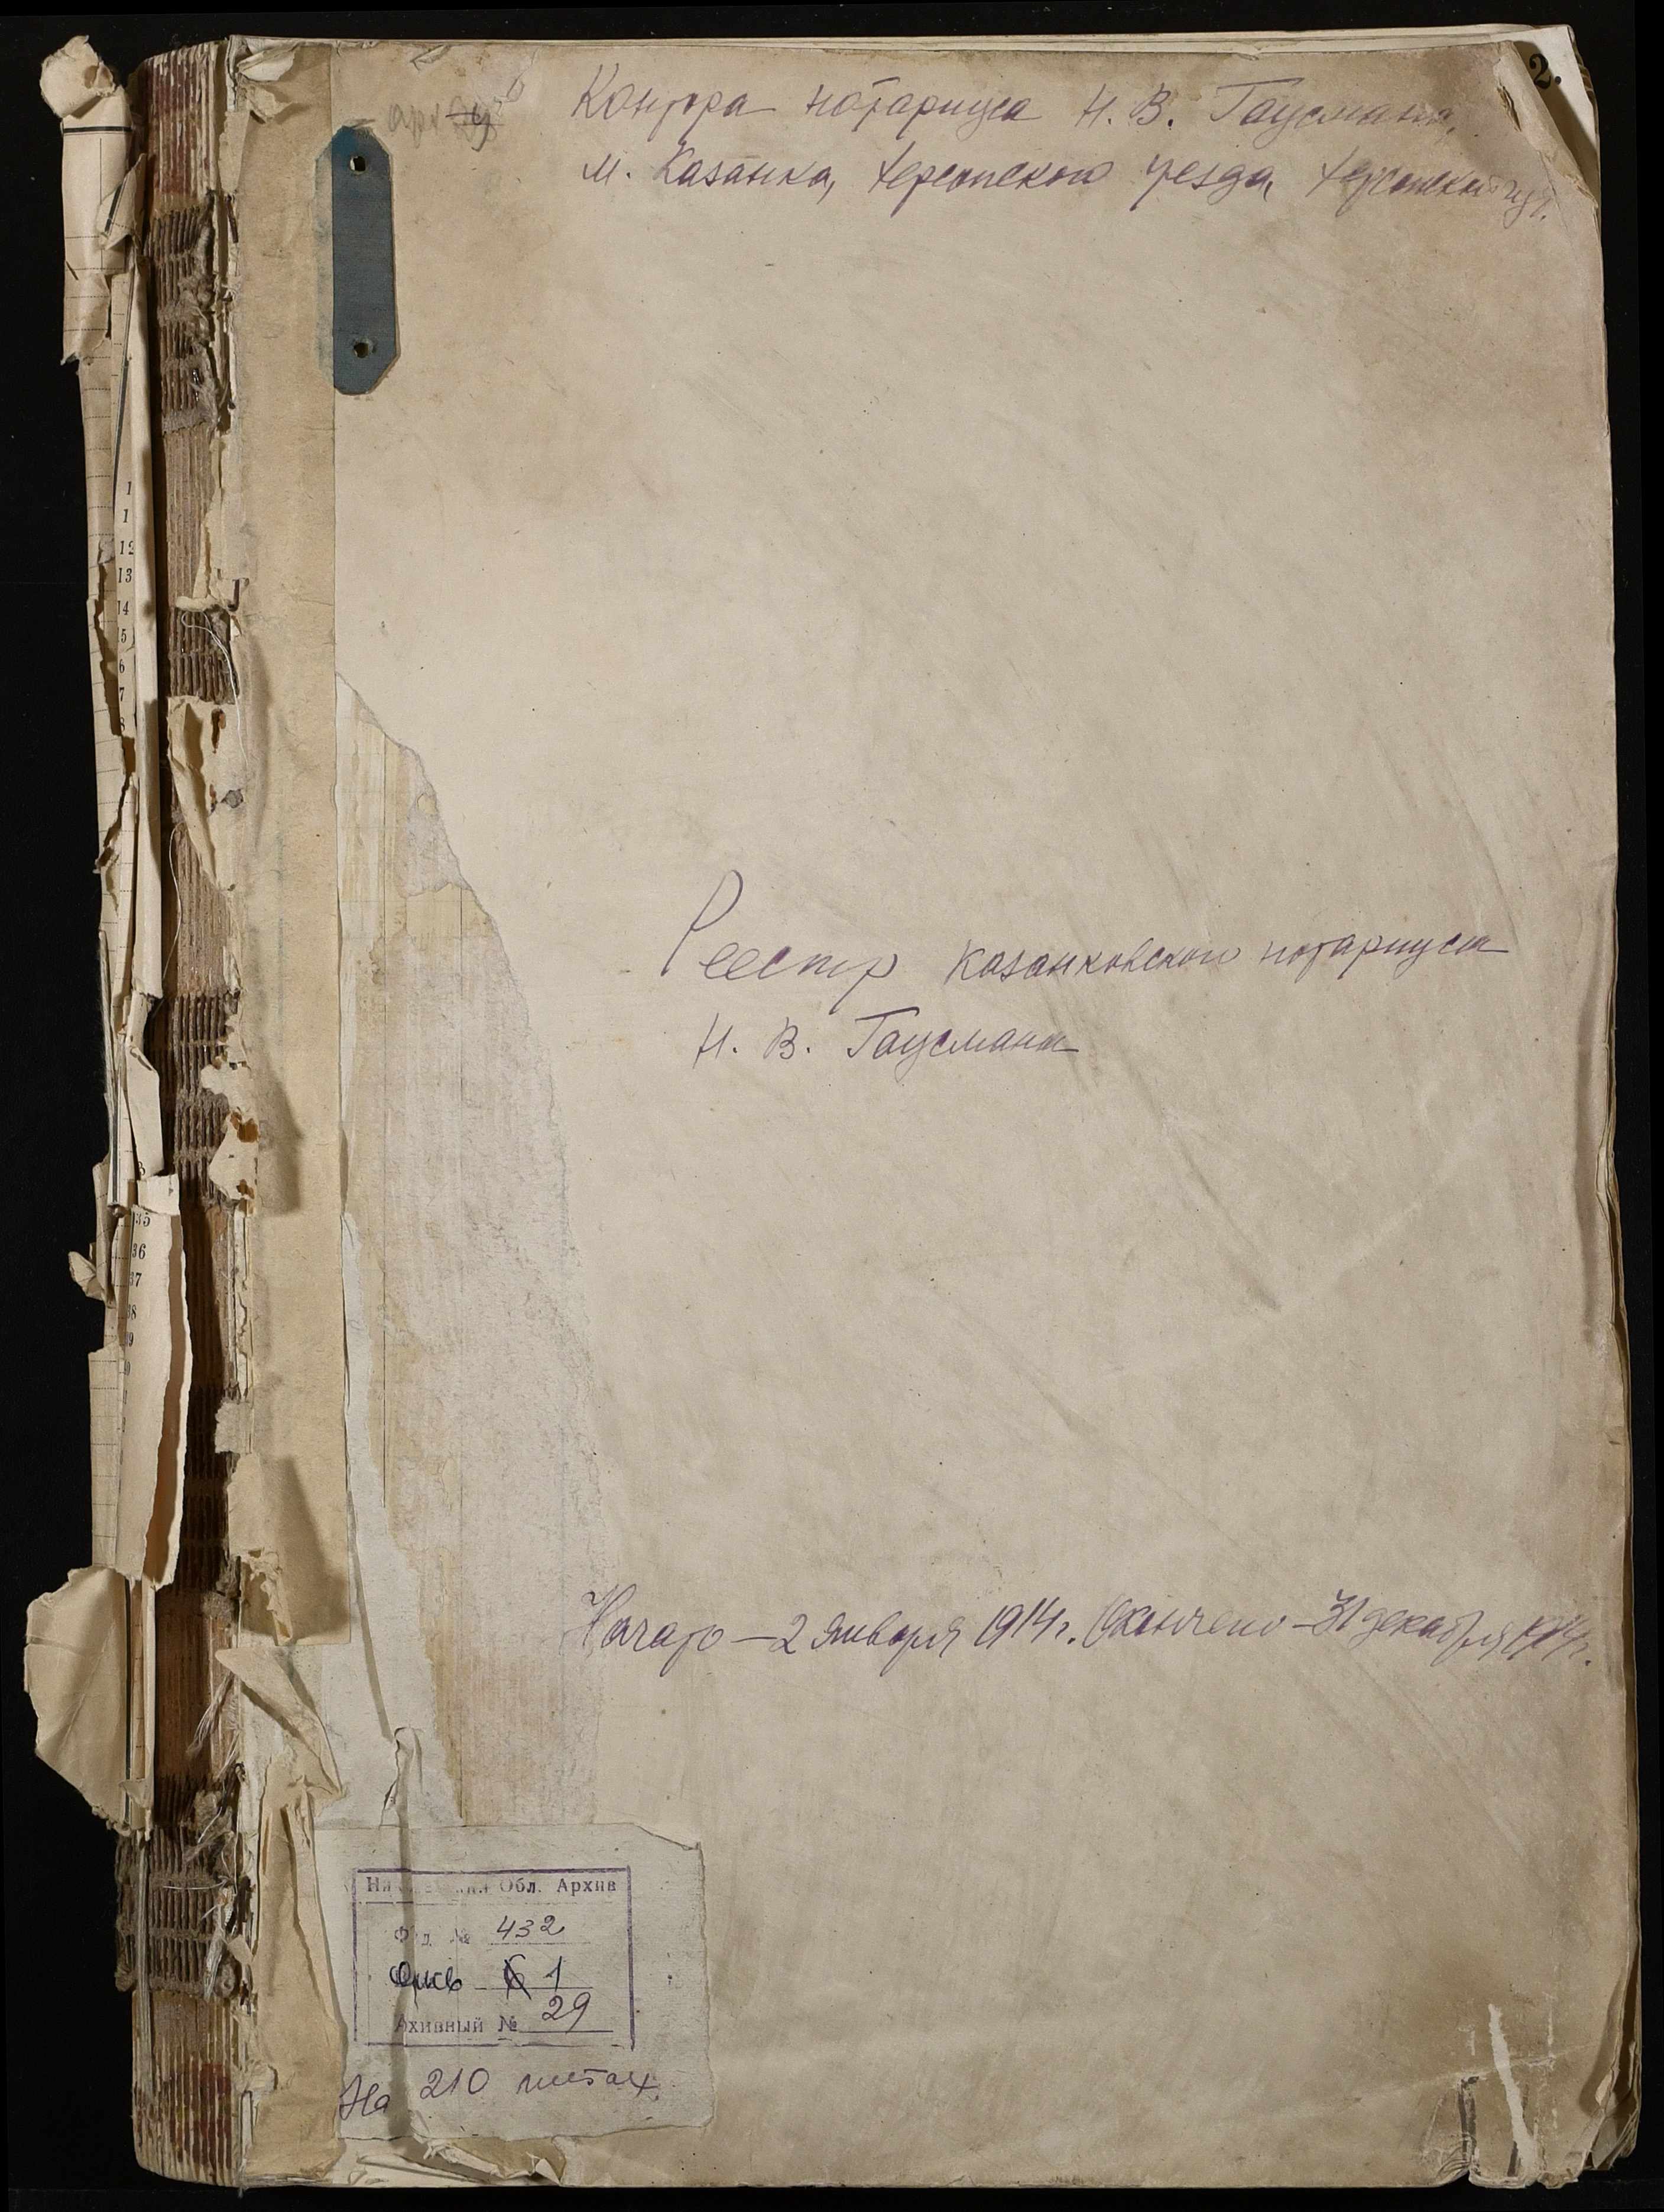 2.
Контора нотариуса Н. В. Гаусмана,
м. Казанка, Херсонского уезда, Херсонской губ.
Реестр казанковского нотариуса
Н. В. Гаусмана
Начато – 2 января 1914 г. Окончено – 31 декабря 1914 г.
Обл. Архив
№ 432
Опись 1
Архивный № 29
На 210 листах
12
13
14
5
6
7
8
35
36
37
38